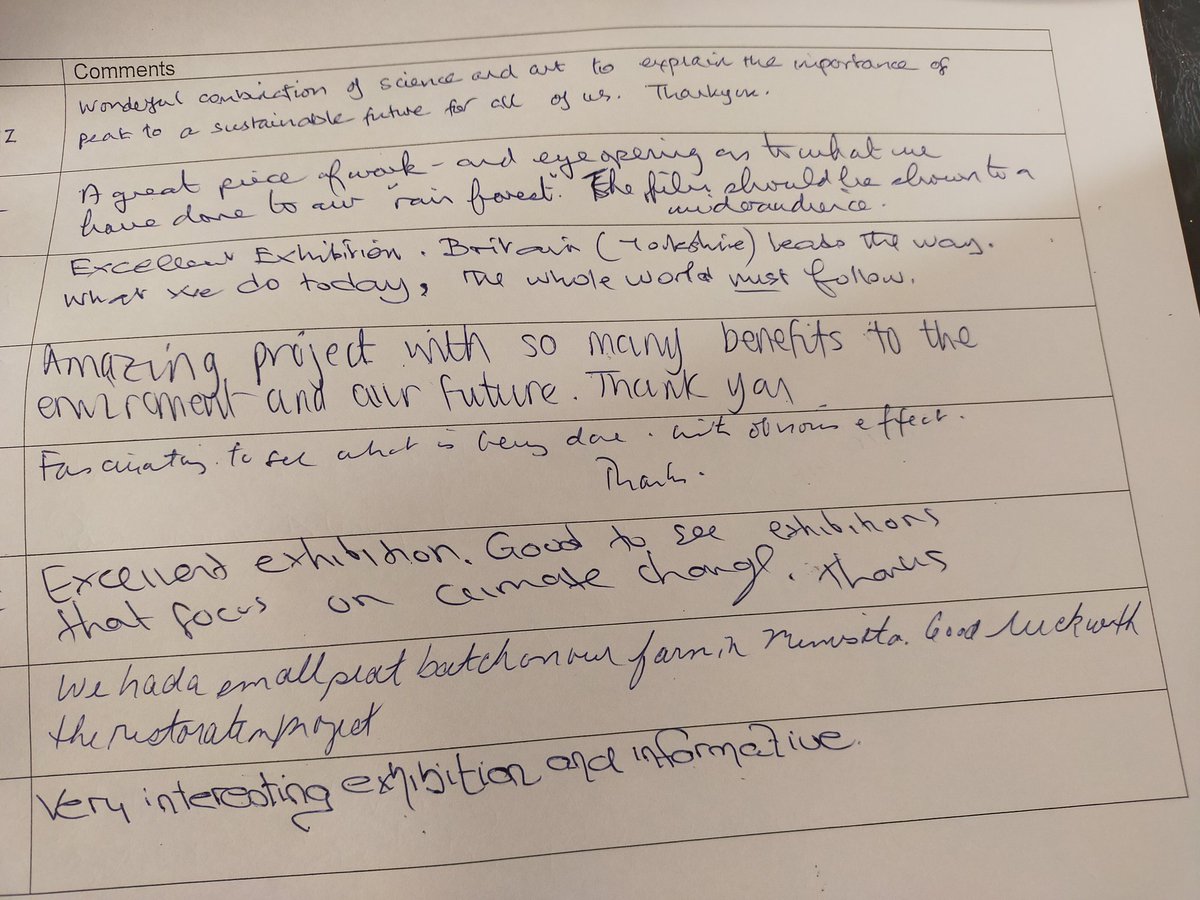 Comments
Wonderful combination of science and art to explain the importance of
Z
peat to a sustainable future for all of us. Thankyou.
A great piece of work - and eye opening as to what we
have done to our "rain forest". The film should be shown to a
wider audience.
Excellent Exhibition. Britain (Yorkshire) leads the way.
What we do today, the whole world must follow.
Amazing project with so many benefits to the
enviroment and our future. Thank you
Fascinating to see what is being done. with obvious effect.
Thanks.
Excellent exhibition. Good to see exhibitions
that focus on climate change. Thanks
We had a small peat batch on our farm in Minnisota. Good luck with
the restoration project
Very interesting exhibition and informative.